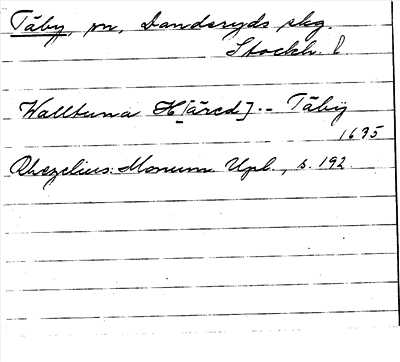 Täby, sn, Danderyds skg.
Stockh. l.
Walltuna H[äred] -- Täbÿ
1635
Rhezelius: Monum. Upl., s. 192.